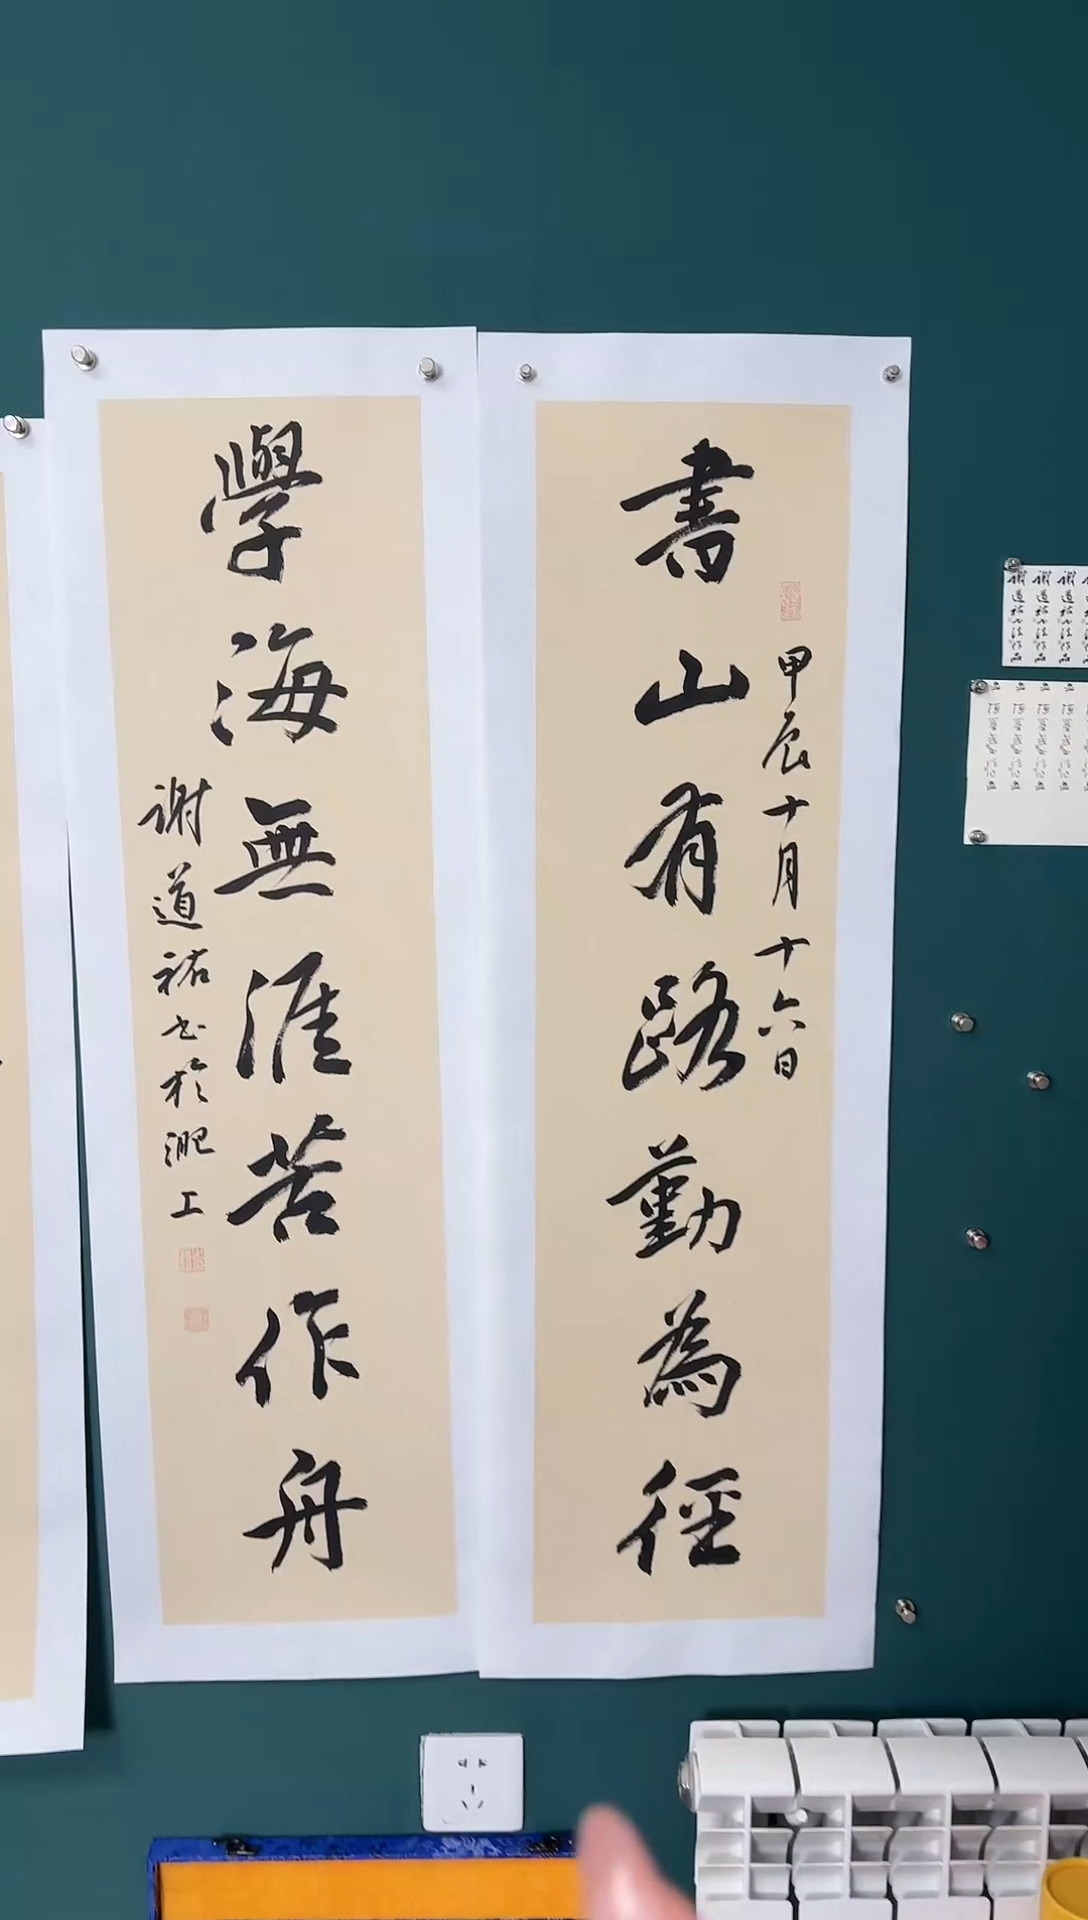 書山有路勤為徑
甲辰十月十六日
學海無涯苦作舟
謝道祐书於淝上